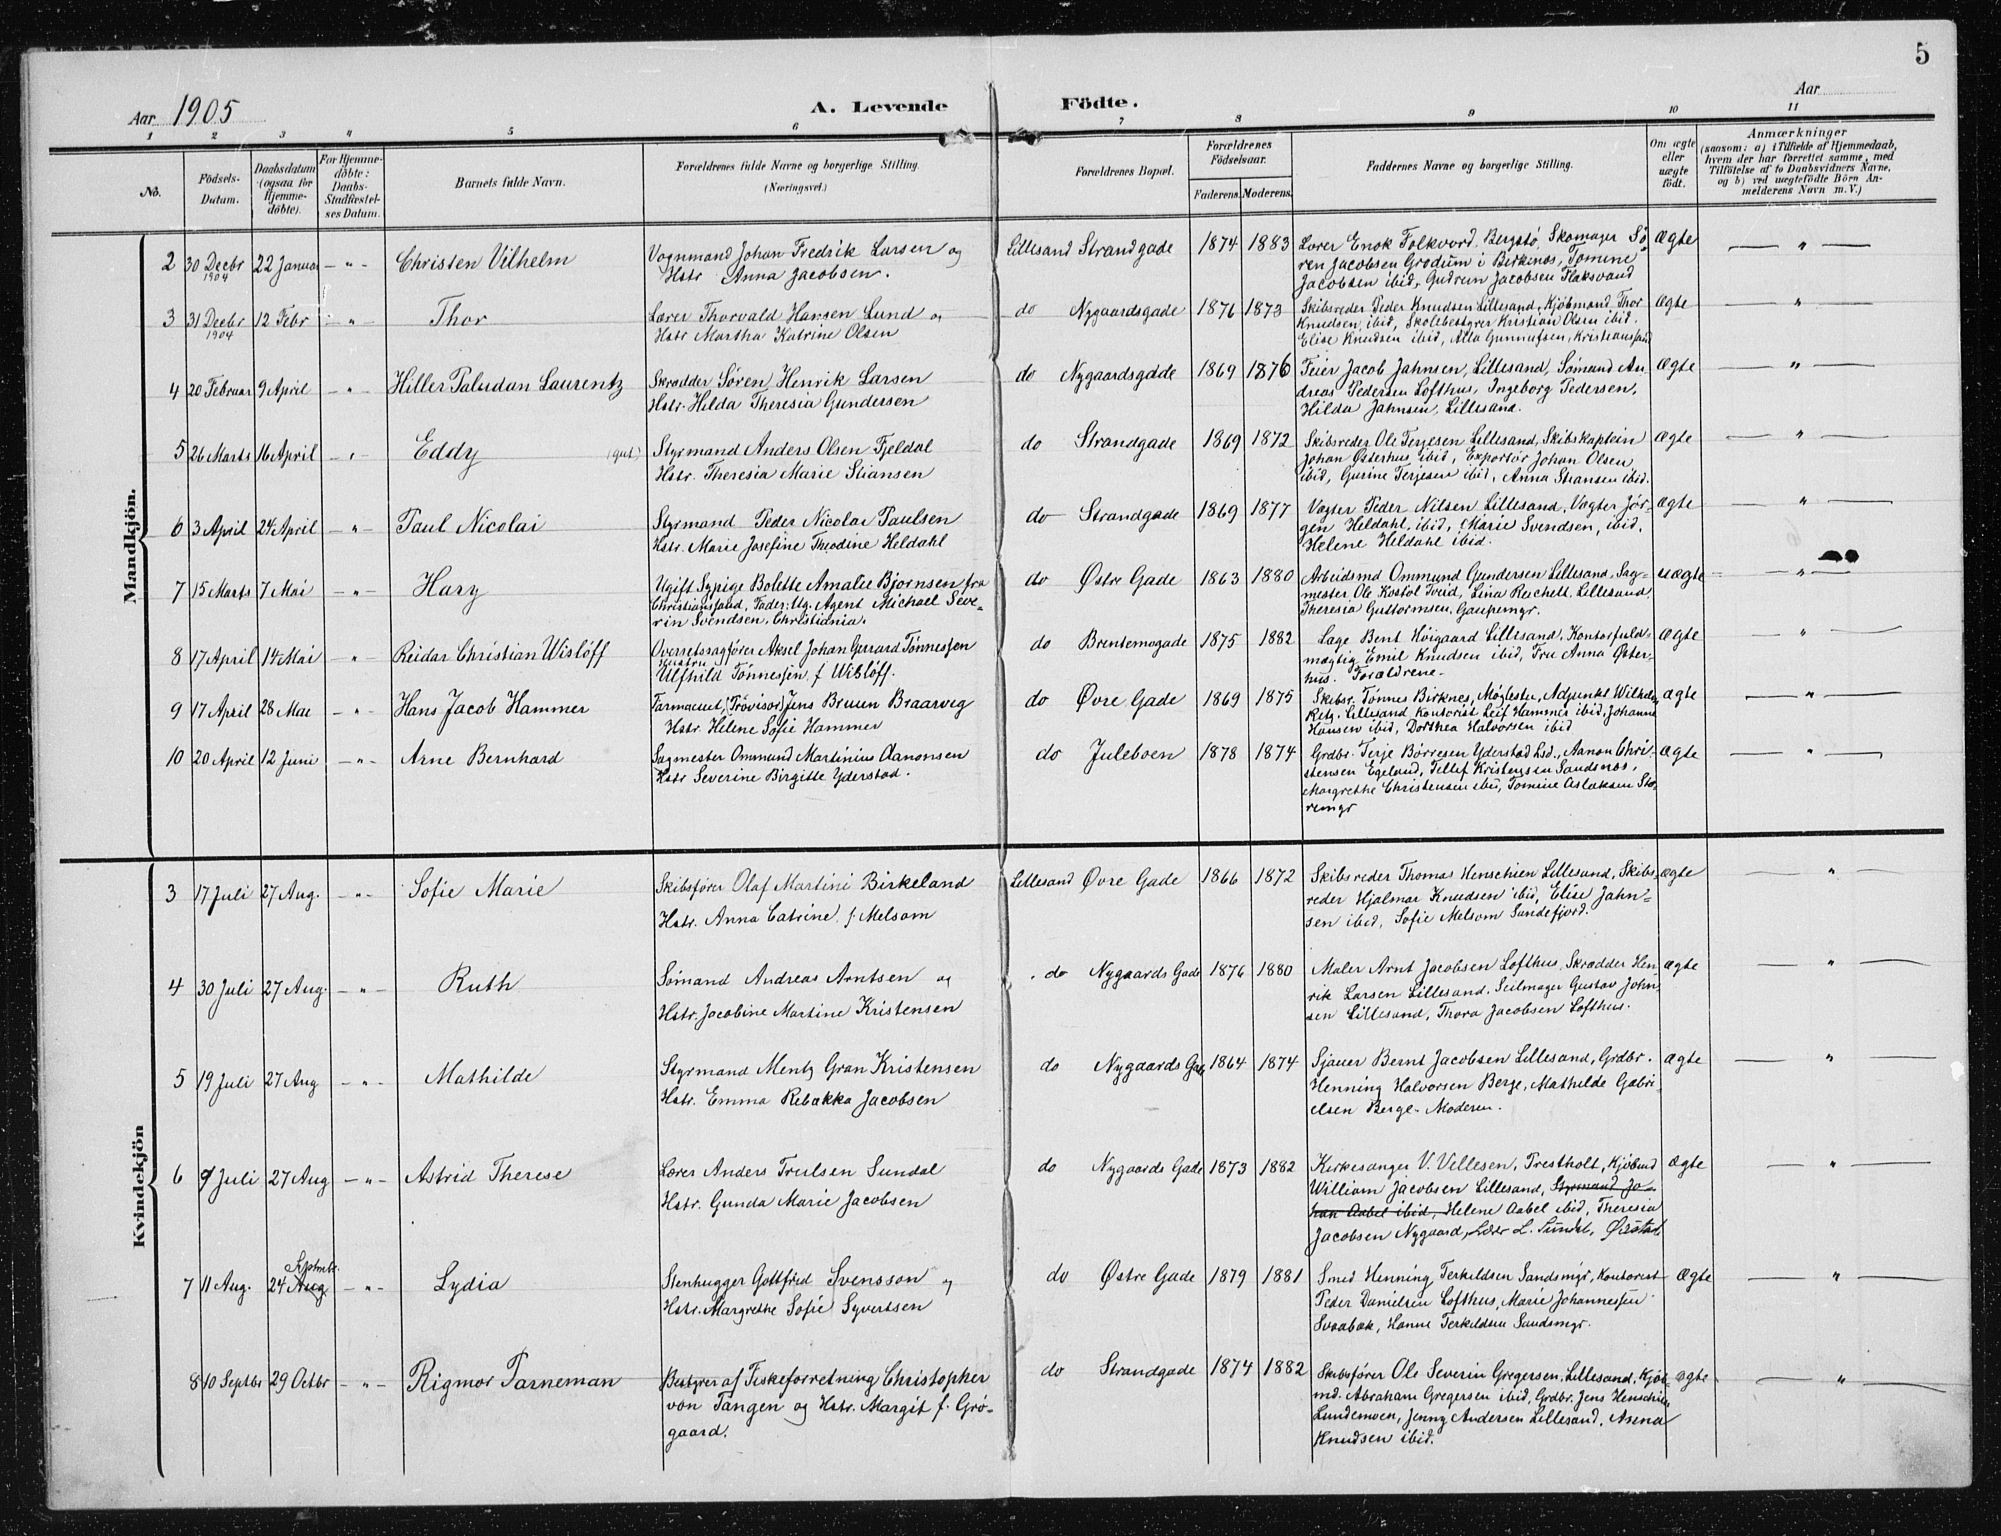 5
Aar 1905
A. Levende Födte.
Aar
1 2 3 4 5 6 7 8 9 10 11
No.
Födsels-Datum.
Daabsdatum (ogsaa for Hjemmedöbte).
For Hjemmedöbte: Daabs-Stadfæstelses Datum.
Barnets fulde Navn.
Forældrenes fulde Navne og borgerlige Stilling. (Næringsvei.)
Forældrenes Bopæl.
Forældrenes Födselsaar.
Faderens. Moderens.
Faddernes Navne og borgerlige Stilling.
Om ægte eller uægte födt.
Anmærkninger (saasom: a) i Tilfælde af Hjemmedaab, hvem der har forrettet samme, med Tilföielse af to Daabsvidners Navne, og b) ved uægtefödte Börn Anmelderens Navn m. V.)
Mandkjön.
2 30 Decbr 1904 22 Januar — " — Christen Vilhelm
Vognmand Johan Fredrik Larsen og
Hstr. Anna Jacobsen.
Lillesand Strandgade 1874 1883
Lærer Enok Folkvord, Bergstø, Skomager Sø-
ren Jacobsen Grødum i Birkenes, Tomine
Jacobsen ibid, Gudrun Jacobsen Flaksvand
Ægte — " —
3 31 Decbr 1904 12 Febr — " — Thor
Lærer Thorvald Hansen Lund og
Hstr Martha Katrine Olsen
do Nygaardsgade 1876 1873
Skibsreder Peder Knudsen Lillesand, Kjøbmand Thor
Knudsen ibid, Skolebestyrer Kristian Olsen ibid.
Elise Knudsen ibid, Alla Gunnufsen, Kristianssand
Ægte — " —
4 20 Februar 9 April — " — Hiller Paludan Laurentz
Skrædder Søren Henrik Larsen
Hstr. Hilda Theresia Gundersen
do Nygaardsgade 1869 1876
Feier Jacob Jahnsen, Lillesand, Sømand An-
dreas Pedersen Lofthus, Ingeborg Pedersen,
Hilda Jahnsen, Lillesand.
Ægte — " —
5 26 Marts 16 April — " — Eddy (gut)
Styrmand Anders Olsen Fjeldal
Hstr. Theresia Marie Stiansen
do Strandgade 1869 1872
Skibsreder Ole Terjesen Lillesand, Skibskaptein
Johan Østerhus ibid, Exportør Johan Olsen
ibid, Gurine Terjesen ibid, Anna Stiansen ibid.
Ægte — " —
6 3 April 24 April — " — Paul Nicolai
Styrmand Peder Nicolai Paulsen
Hstr. Marie Josefine Theodine Heldahl
do Strandgade 1869 1877
Vægter Peder Nilsen Lillesand, Vægter Jør-
gen Heldahl ibid, Marie Svendsen, ibid,
Helene Heldahl ibid.
Ægte — " —
7 15 Marts 7 Mai — " — Hary
Ugift Sypige Bolette Amalie Bjørnsen fra
Christianssand, Fader: Ug. Agent Michael Seve-
rin Svendsen, Christiania.
do Østre Gade 1863 1880
Arbeidsmd Ommund Gundersen Lillesand, Sag-
mester Ole Kostøl Tveid, Lina Reichelt, Lillesand,
Theresia Guttormsen, Gaupemyr.
uægte — " —
8 17 April 14 Mai — " — Reidar Christian Wisløff
Overretssagfører Aksel Johan Gerrard Tønnessen
Hustru Ulfhild Tønnessen f Wisløff.
do Brentemogade 1875 1882
Læge Bent Høigaard Lillesand, Kontorfuld-
mægtig Emil Knudsen ibid, Fru Anna Øster-
hus. Forældrene.
Ægte — " —
9 17 April 28 Mai — " — Hans Jacob Hammer
Farmaceut, (Provisor) Jens Bruun Braarvig
Hstr. Helene Sofie Hammer
do Øvre Gade 1869 1875
Skibsr. Tønnes Birknes, Møglestu, Adjunkt Wilhelm
Lillesand Kontorist Leif Hammer ibid, Johanne
Hansen ibid, Dorthea Halvorsen ibid
ægte — " —
10 20 April 12 Juni — " — Arne Bernhard
Sagmester Ommund Martinius Aanonsen
Hstr Severine Birgitte Yderstad.
do Juleboen 1878 1874
Grdbr. Terje Børresen Yderstad Lsd., Aanon Chri-
stensen Egeland, Tellef Kristensen Sandsnes,
Margrethe Christensen ibid, Tomine Aslaksen Sto-
remyr
ægte — " —
Kvindekjön
3 17 Juli 27 Aug. — " — Sofie Marie
Skibsfører Olaf Martini Birkeland
Hstr. Anna Catrine f. Melsom
Lillesand Øvre Gade 1866 1872
Skibsreder Thomas Henschien Lillesand, Skibs-
reder Hjalmar Knudsen ibid, Elise Jahn-
sen ibid, Sofie Melsom Sandefjord.
ægte "
4 30 Juli 27 Aug. — " — Ruth
Sømand Andreas Arntsen og
Hstr. Jacobine Martine Kristensen
do Nygaards Gade 1876 1880
Maler Arnt Jacobsen Lofthus, Skrædder Hen-
rik Larsen Lillesand, Seilmager Gustav John-
sen Lillesand, Thora Jacobsen Lofthus.
ægte — " —
5 19 Juli 27 Aug — " — Mathilde
Styrmand Mentz Gran Kristensen
Hstr. Emma Rebekka Jacobsen
do Nygaards Gade 1864 1874
Sjauer Bernt Jacobsen Lillesand, Grdbr.
Henning Halvorsen Berge, Mathilde Gabri-
elsen Berge. Moderen.
Ægte — " —
6 9 Juli 27 Aug — " — Astrid Therese
Lærer Anders Trulsen Sundal
Hstr. Gunda Marie Jacobsen
do Nygaards Gade 1873 1882
Kirkesanger V. Vellesen, Prestholt, Kjøbmd
William Jacobsen Lillesand, Styrmand Jo-
han Aabel ibid, Helene Aabel ibid, Theresia
Jacobsen Nygaard, Lærer L. Sundal, Øiestad
ægte — " —
7 11 Aug. 24 Aug Septmbr. — " — Lydia
Stenhugger Gottfred Svensson og
Hstr. Margrethe Sofie Syvertsen
do Østre Gade 1879 1881
Smed Henning Terkildsen Sandsmyr, Kontorist
Peder Danielsen Lofthus, Marie Johannessen
Svaabæk, Hanne Terkildsen Sandsmyr.
ægte — " —
8 10 Septbr 29 Octbr — " — Rigmor Parneman
Bestyrer af Fiskeforretning Christopher
von Tangen og Hstr. Margit f. Grø-
gaard.
do Strandgade 1874 1882
Skibsfører Ole Severin Gregersen, Lillesand, Kjøb-
md. Abraham Gregersen ibid, Grdbr. Jens Henschien
Lundemoen, Jenny Andersen Lillesand, Asena
Knudsen ibid.
ægte — " —